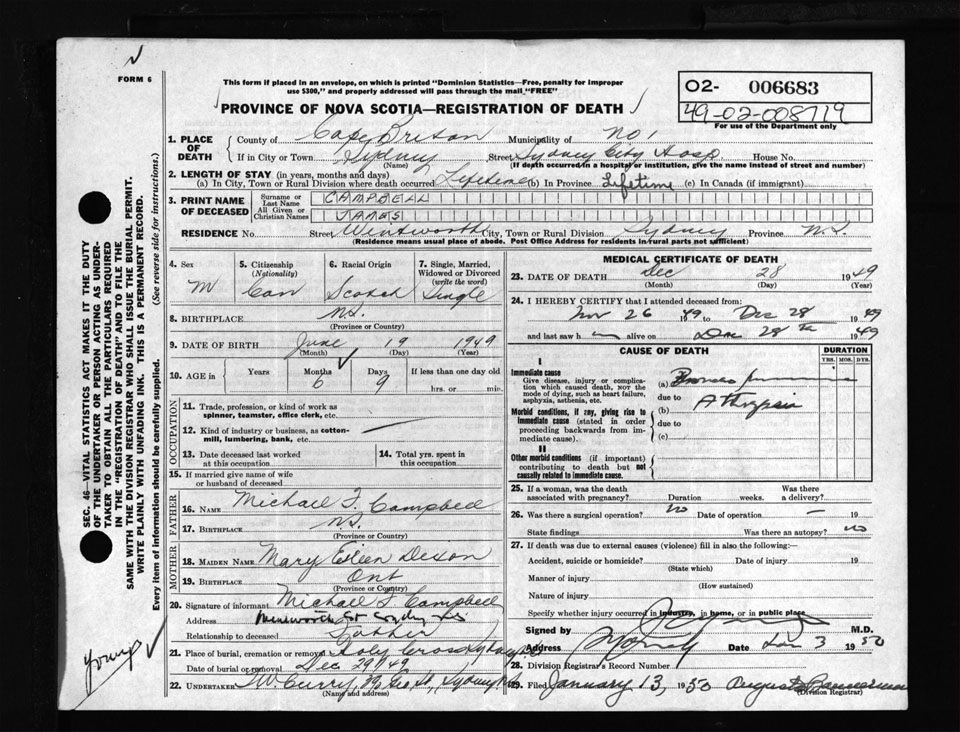 FORM 6
This form if placed in an envelope, on which is printed "Dominion Statistics—Free, penalty for improper
use $300," and properly addressed will pass through the mail "FREE"
PROVINCE OF NOVA SCOTIA—REGISTRATION OF DEATH
02- 006683
49-02-008719
For use of the Department only
SEC. 46—VITAL STATISTICS ACT MAKES IT THE DUTY
OF THE UNDERTAKER OR PERSON ACTING AS UNDER-
TAKER TO OBTAIN ALL THE PARTICULARS REQUIRED
IN THE "REGISTRATION OF DEATH" AND TO FILE THE
SAME WITH THE DIVISION REGISTRAR WHO SHALL ISSUE THE BURIAL PERMIT.
WRITE PLAINLY WITH UNFADING INK. THIS IS A PERMANENT RECORD.
Every item of information should be carefully supplied. (See reverse side for instructions.)
1. PLACE OF DEATH County of Cape Breton Municipality of No 1
If in City or Town Sydney Street Sydney City Hosp House No.
(Name) (If death occurred in a hospital or institution, give the name instead of street and number)
2. LENGTH OF STAY (in years, months and days)
(a) In City, Town or Rural Division where death occurred Lifetime (b) In Province Lifetime (c) In Canada (if immigrant)
3. PRINT NAME OF DECEASED Surname or Last Name CAMPBELL
All Given or Christian Names JAMES
RESIDENCE No. Street Wentworth City, Town or Rural Division Sydney Province N.S.
(Residence means usual place of abode. Post Office Address for residents in rural parts not sufficient)
4. Sex M
5. Citizenship (Nationality) Can
6. Racial Origin Scotch
7. Single, Married, Widowed or Divorced (write the word) Single
8. BIRTHPLACE N.S.
(Province or Country)
9. DATE OF BIRTH June 19 1949
(Month) (Day) (Year)
10. AGE in Years Months 6 Days 9 If less than one day old
hrs. or min.
OCCUPATION
11. Trade, profession, or kind of work as
spinner, teamster, office clerk, etc.
12. Kind of industry or business, as cotton-
mill, lumbering, bank, etc.
13. Date deceased last worked
at this occupation
14. Total yrs. spent in
this occupation
15. If married give name of wife
or husband of deceased
FATHER
16. NAME Michael F. Campbell
17. BIRTHPLACE N.S.
(Province or Country)
MOTHER
18. MAIDEN NAME Mary Eileen Dixon
19. BIRTHPLACE Ont
(Province or Country)
20. Signature of informant Michael F Campbell
Address Wentworth St Sydney NS
Relationship to deceased Father
21. Place of burial, cremation or removal Holy Cross Sydney
Date of burial or removal Dec 29/49
22. UNDERTAKER Curry, Geo St, Sydney N.S.
(Name and address)
MEDICAL CERTIFICATE OF DEATH
23. DATE OF DEATH Dec 28 1949
(Month) (Day) (Year)
24. I HEREBY CERTIFY that I attended deceased from:
Nov 26 1949 to Dec 28 1949
and last saw h alive on Dec 28th 1949
CAUSE OF DEATH
DURATION
YRS. MOS. DYS.
I
Immediate cause
Give disease, injury or complica-
tion which caused death, NOT the
mode of dying, such as heart failure,
asphyxia, asthenia, etc.
(a) Broncho
due to
Morbid conditions, if any, giving rise to
immediate cause (stated in order
proceeding backwards from im-
mediate cause).
(b) Athrepsia
due to
(c)
II
Other morbid conditions (if important)
contributing to death but not
causally related to immediate cause.
25. If a woman, was the death
associated with pregnancy? Duration weeks. Was there
a delivery?
26. Was there a surgical operation? no Date of operation —
State findings Was there an autopsy? no
27. If death was due to external causes (violence) fill in also the following:—
Accident, suicide or homicide? Date of injury 19
(State which)
Manner of injury
(How sustained)
Nature of injury
Specify whether injury occurred in industry, in home, or in public place
Signed by M.D.
Address Date Jan 3 1950
28. Division Registrar's Record Number
29. Filed January 13, 1950
(Division Registrar)
young